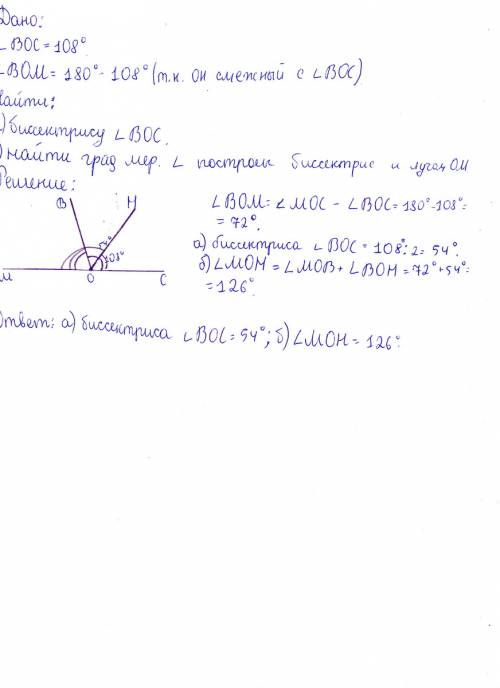 Дано:
∠BOC = 108°.
∠BOM = 180° - 108° (т.к. он смежный с ∠BOC)
айти:
) биссектрису ∠BOC.
) найти град мер. ∠ построен биссектрис и лучом OM
Решение:
B H
108°
M O C
∠BOM = ∠MOC - ∠BOC = 180° - 108° =
= 72°.
а) биссектриса ∠BOC = 108° : 2 = 54°.
б) ∠MOH = ∠MOB + ∠BOH = 72° + 54° =
= 126°.
Ответ: а) биссектриса ∠BOC = 54°; б) ∠MOH = 126°.